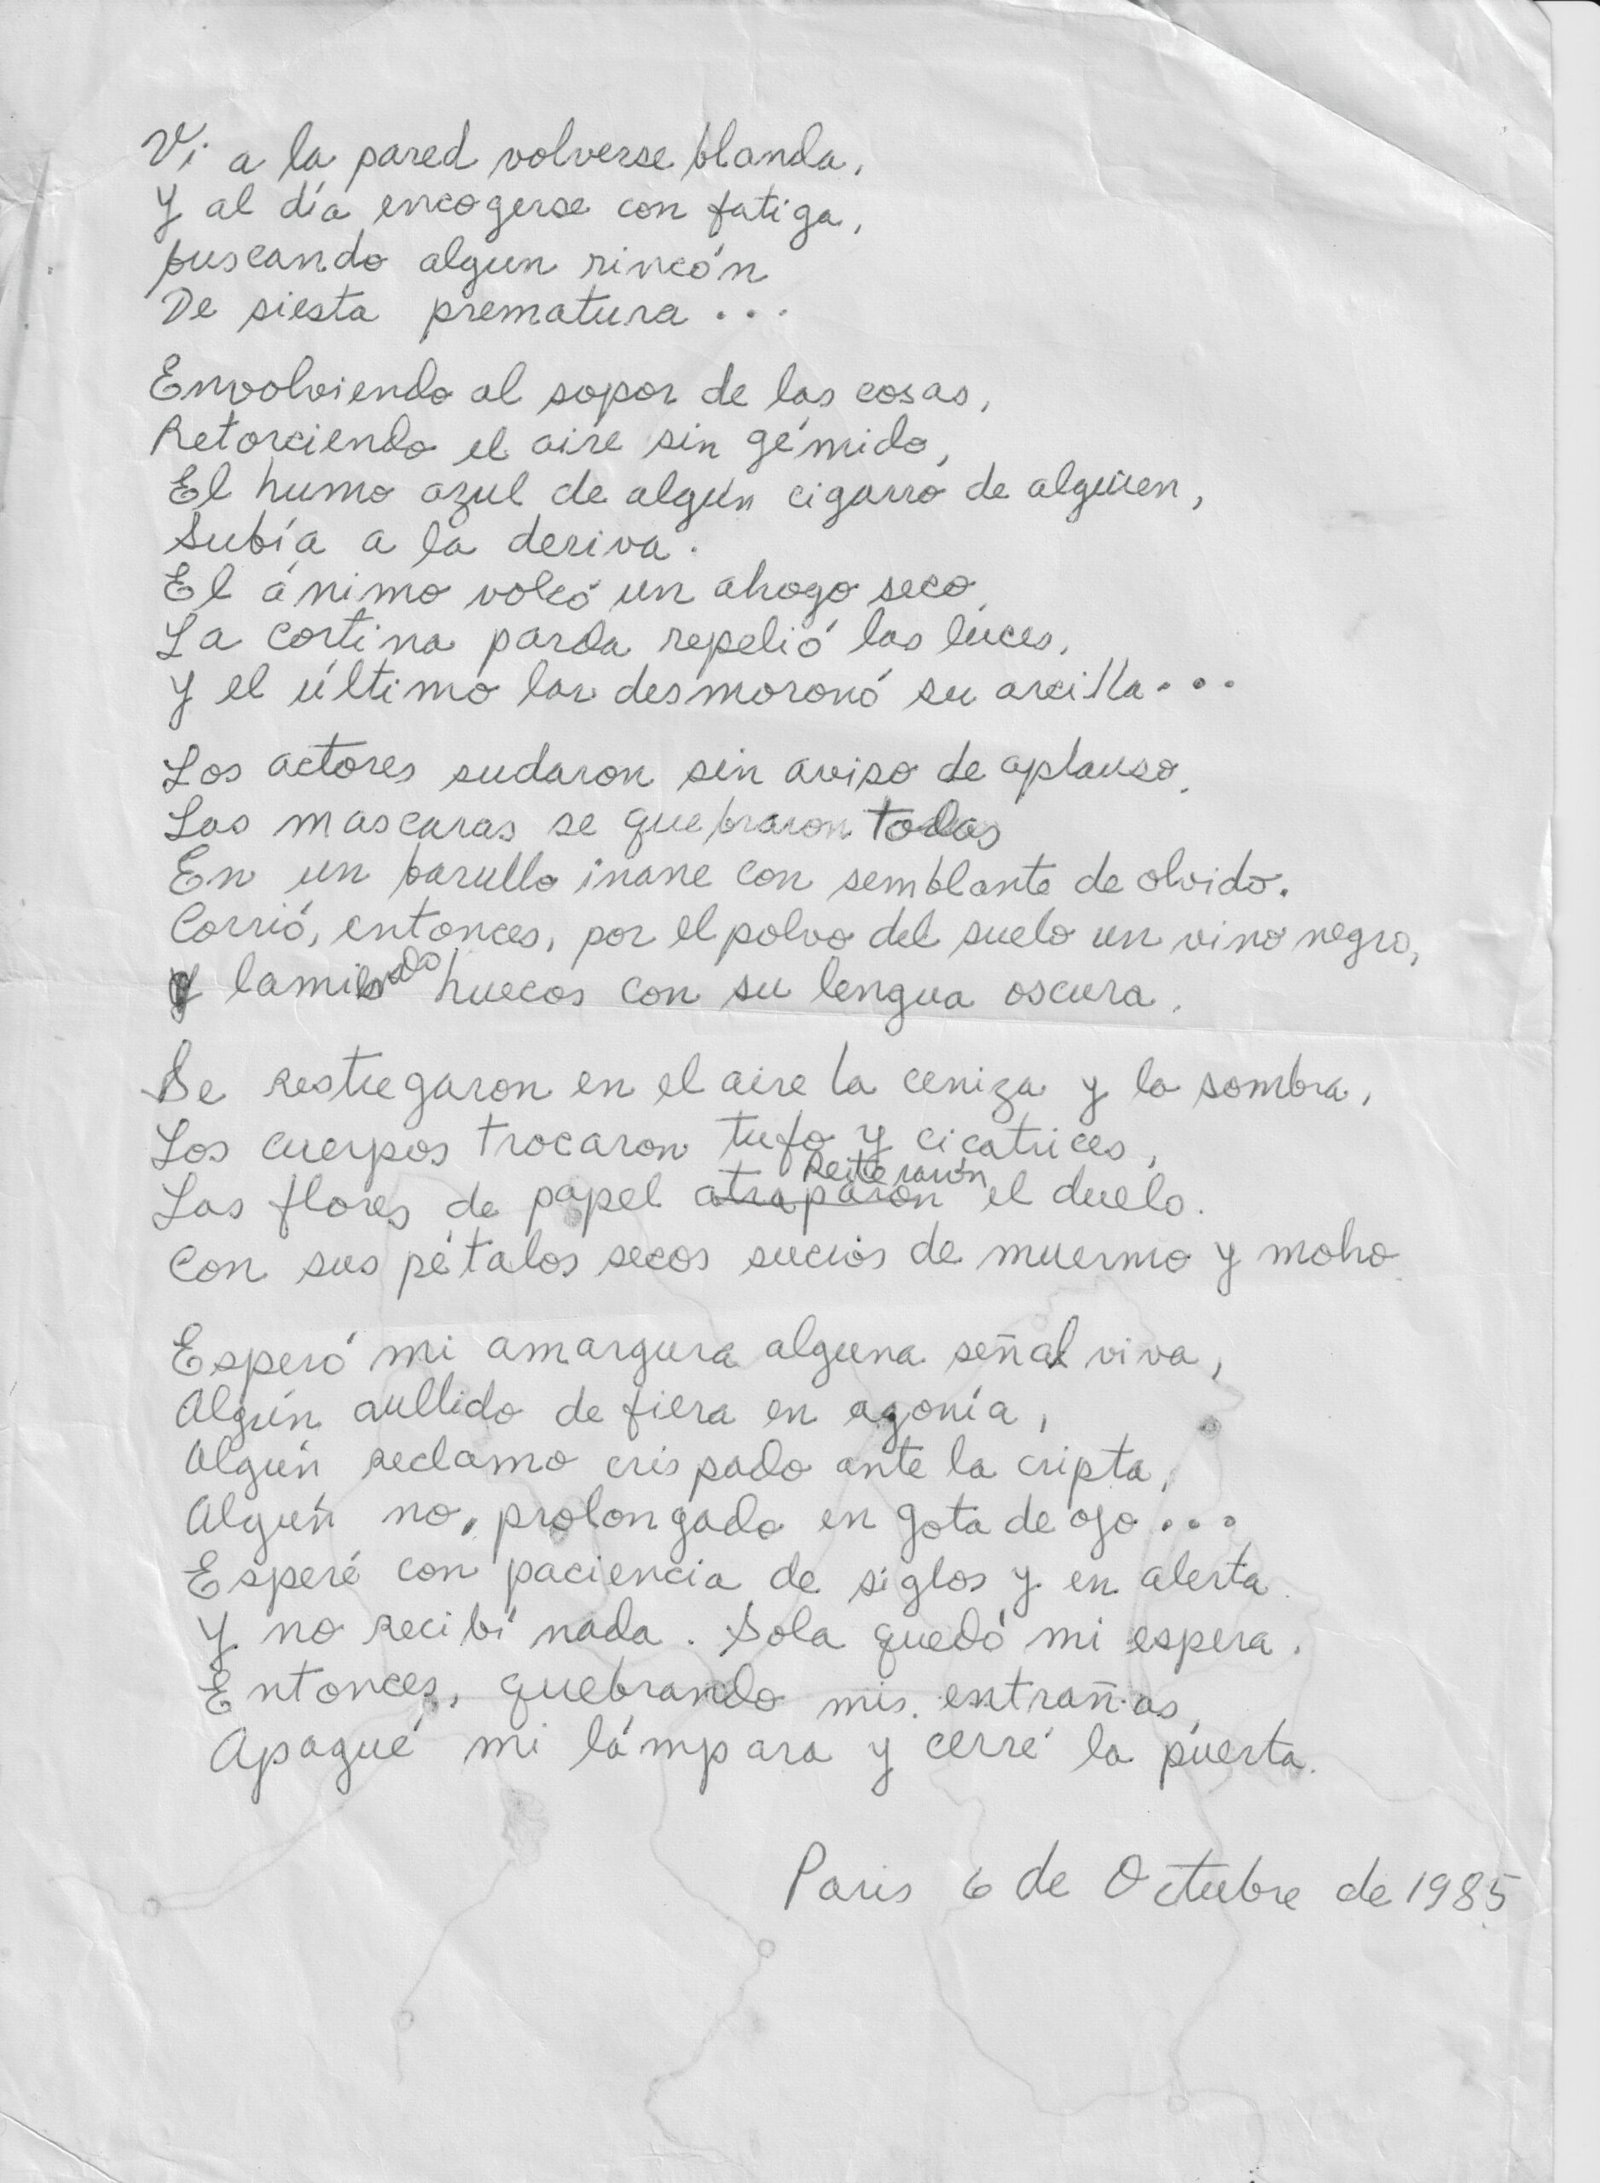 Vi a la pared volverse blanda,
Y al día encogerse con fatiga,
buscando algun rincón
De siesta prematura...
Envolviendo al sopor de las cosas,
Retorciendo el aire sin gémido,
El humo azul de algún cigarro de alguien,
Subía a la deriva.
El ánimo volcó un ahogo seco,
La cortina parda repelió las luces,
Y el último lar desmoronó su arcilla...
Los actores sudaron sin aviso de aplauso.
Las mascaras se quebraron todas
En un barullo inane con semblante de olvido.
Corrió, entonces, por el polvo del suelo un vino negro,
Y lamiendo huecos con su lengua oscura.
Se restregaron en el aire la ceniza y la sombra,
Los cuerpos trocaron tufo y cicatrices,
Reiteraron
Las flores de papel atraparon el duelo.
Con sus pétalos secos sucios de muermo y moho.
Esperó mi amargura alguna señal viva,
Algún aullido de fiera en agonía,
Algún reclamo crispado ante la cripta,
Algún no, prolongado en gota de ojo...
Esperé con paciencia de siglos y en alerta.
Y no recibí nada. Sola quedó mi espera.
Entonces, quebrando mis entrañas,
Apagué mi lámpara y cerré la puerta.
Paris 6 de Octubre de 1985